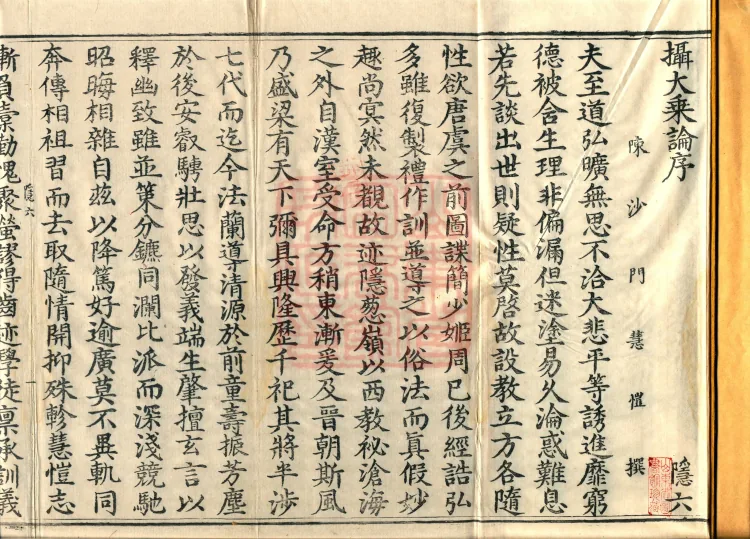 攝大乗論序 隱六
陳沙門慧愷撰
夫至道弘曠無思不洽大悲平等誘進靡窮
德被含生理非偏漏但迷塗易久淪惑難息
若先談出世則疑性莫啓故設教立方各隨
性欲唐虞之前圖諜簡少姬周已後經誥弘
多雖復製禮作訓並導之以俗法而真假妙
趣尚冥然未覩故迹隱葱嶺以西教祕滄海
之外自漢室受命方稍東漸爰及晉朝斯風
乃盛梁有天下彌具興隆歷千祀其將半涉
七代而迄今法蘭導清源於前童壽振芳塵
於後安叡騁壯思以發義端生肇擅玄言以
釋幽致雖並策分鑣同瀾比派而深淺競馳
昭晦相雜自茲以降篤好逾廣莫不異軌同
奔傳相祖習而去取隨情開抑殊軫慧愷志
隱六
慚負橐勤愧聚螢謬得齒迹學徒稟承訓義